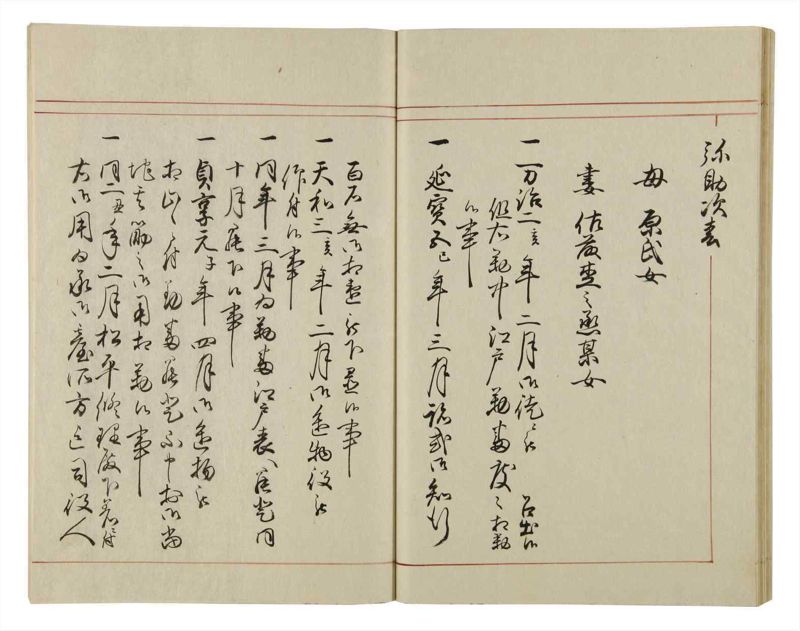 弥助次春
母 原氏女
妻 佐藤杢之丞某女
一 万治二亥年二月御徒ニ被 召出候
但右勤中江戸勤番度々相勤
候事
一 延宝五巳年三月跡式御知行
百石無御相違被下置候事
一 天和三亥年二月御進物役被
仰付候事
一 同年三月為勤番江戸表江罷登同
十月罷下候事
一 貞享元子年四月御進物被
相止 付勤番罷登 中於御当
地其節之御用相勤候事
一 同二丑年二月松平修理殿下着ニ付
右御用為承御台所方江司役人